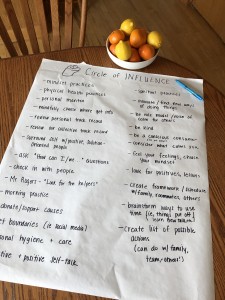 Circle of INFLUENCE
- mindset practices
- physical health practices
- personal mantra
- mindfully check where get info
- review personal track record
- review our collective track record
- surround self w/ positive, solution-
oriented people
- ask "How can I/we" questions
- check in with people
- Mr. Rogers - "Look for the helpers"
morning practice
donate/support causes
boundaries (ie social media)
personal hygiene + care
positive self-talk
- spiritual practices
- find new ways
of doing things
- be
calm for others
- be kind
- be a conscious consumer
- consider what others
- feel your feelings, check
your mindset
- look for positives, lessons
- create framework / schedule
w/ family, roommates, others
- brainstorm ways to use
time (ie, things put off,
learn new
- create list of possible
actions
(can do w/ family,
team, others)